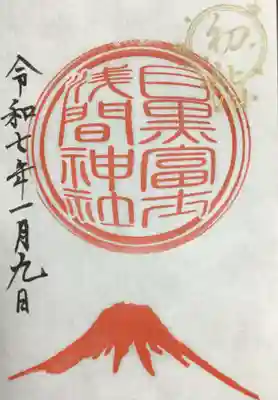 初詣
目黒富士
浅間神社
令和七年一月九日